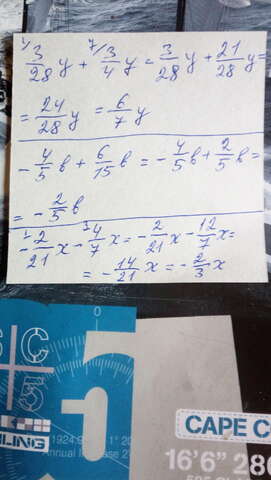 ¹/ 3/28 y + ⁷/ 3/4 y = 3/28 y + 21/28 y =
= 24/28 y = 6/7 y
- 4/5 b + 6/15 b = - 4/5 b + 2/5 b =
= - 2/5 b
- ¹/ 2/21 x - ³/ 4/7 x = - 2/21 x - 12/7 x =
= - 14/21 x = - 2/3 x
SC
5
5
LING
1924,9
1° 20
Annual Increase 2'
CAPE C
16'6" 280